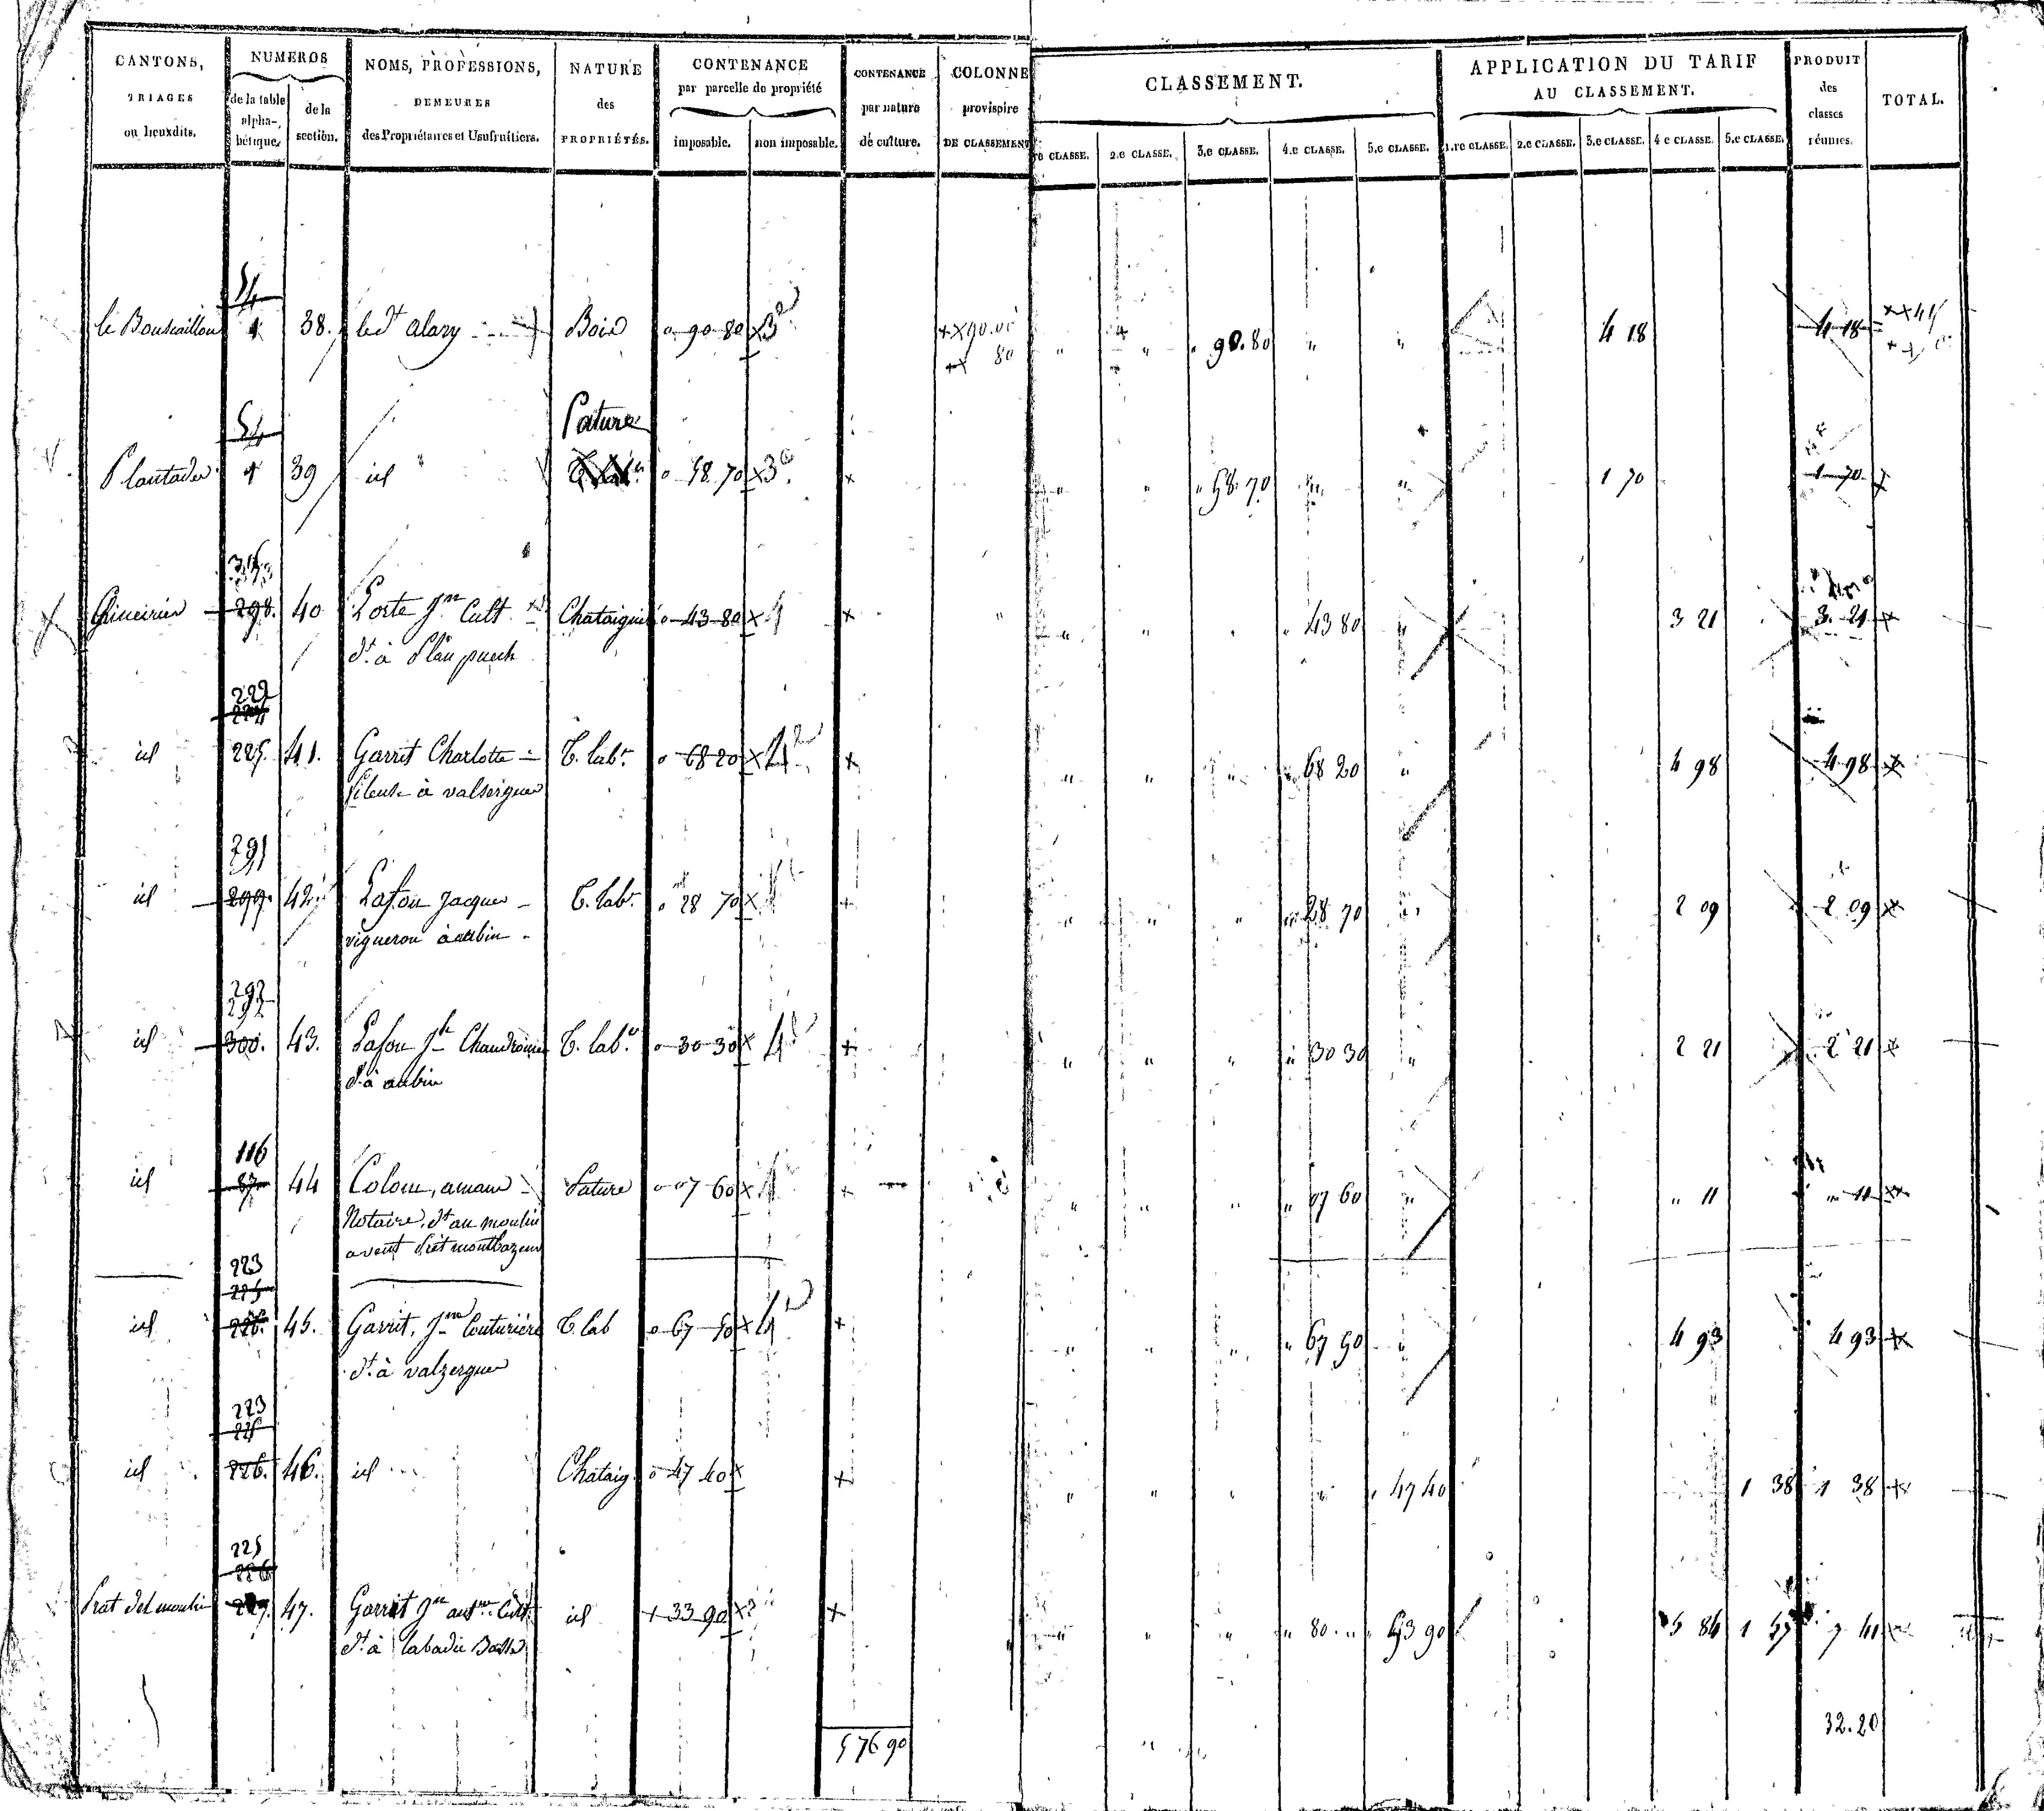 CANTONS, TRIAGES ou lieuxdits.
NUMEROS
de la table alphabétique.
de la section.
NOMS, PROFESSIONS, DEMEURES des Propriétaires et Usufruitiers.
NATURE des PROPRIÉTÉS.
CONTENANCE par parcelle de propriété
imposable.
non imposable.
CONTENANCE par nature de culture.
COLONNE provisoire DE CLASSEMENT
CLASSEMENT.
re CLASSE. 2.e CLASSE. 3.e CLASSE. 4.e CLASSE. 5.e CLASSE.
APPLICATION DU TARIF AU CLASSEMENT.
1.re CLASSE. 2.e CLASSE. 3.e CLASSE. 4 e CLASSE. 5.e CLASSE.
PRODUIT des classes réunies.
TOTAL.
54
le Bouscaillou 1 38. led.t alary Bois 0 90 80 X 3 90.80 4 18 4 18
54 Pature
Plantades 1 39 id 0 58 70 X 3 58.70 1 70 1 70
298. 40 Porte J.m Cult. Chataigni 0 43 80 X 4 43 80 3 21 3. 21
d.t à Plau puech
222
225. 41. Garrit Charlotte T. lab.r 0 68 20 X 4 68 20 4 98 4 98
id
fileuse à valsergues
291
id 299. 42. Lafon Jacques T. lab.r 0 28 70 X 28 70 2 09 2 09
vigneron à aubin
292
id 300. 43. Lafon J.h Chaudronnier T. lab.r 0 30 30 X 4 30 30 2 21 2 21
d.t à aubin
116
id 87 44 Colom, amans Pature 0 07 60 X 07 60 11 11
Notaire, d.t au moulin
avent près montbazens
223
225
id 226. 45. Garrit, J.m Couturière T. lab 0 67 50 X 4 67 50 4 93 4 93
d.t à valzergues
223
225
id 226. 46. id Chataig. 0 47 40 X 47 40 1 38 1 38
225
226
Prat del moulin 227. 47. Garrit J.n ant.ne Cult. id + 33 90 X 80 53 90 5 84 1 57 7 41
d.t à labadie Basse
5 76 90
32.20